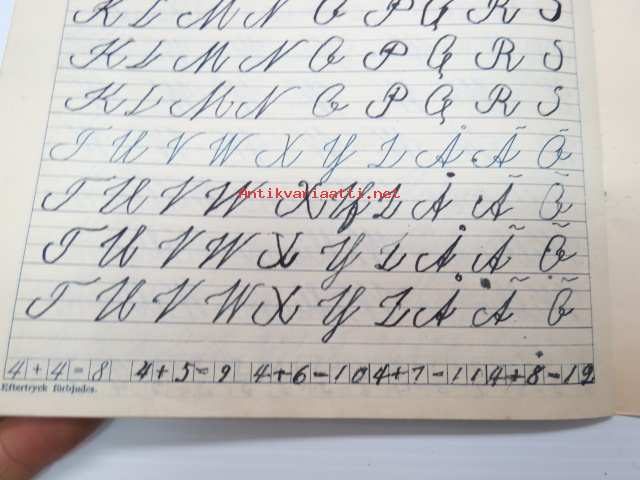 K L M N O P Q R S
K L M N O P Q R S
K L M N O P Q R S
T U V W X Y Z Å Ä Ö
T U V W X Y Z Å Ä Ö
Antikvariaatti.net
T U V W X Y Z Å Ä Ö
T U V W X Y Z Å Ä Ö
4+4=8 4+5=9 4+6=10 4+7=11 4+8=12
Eftertryck förbjudes.